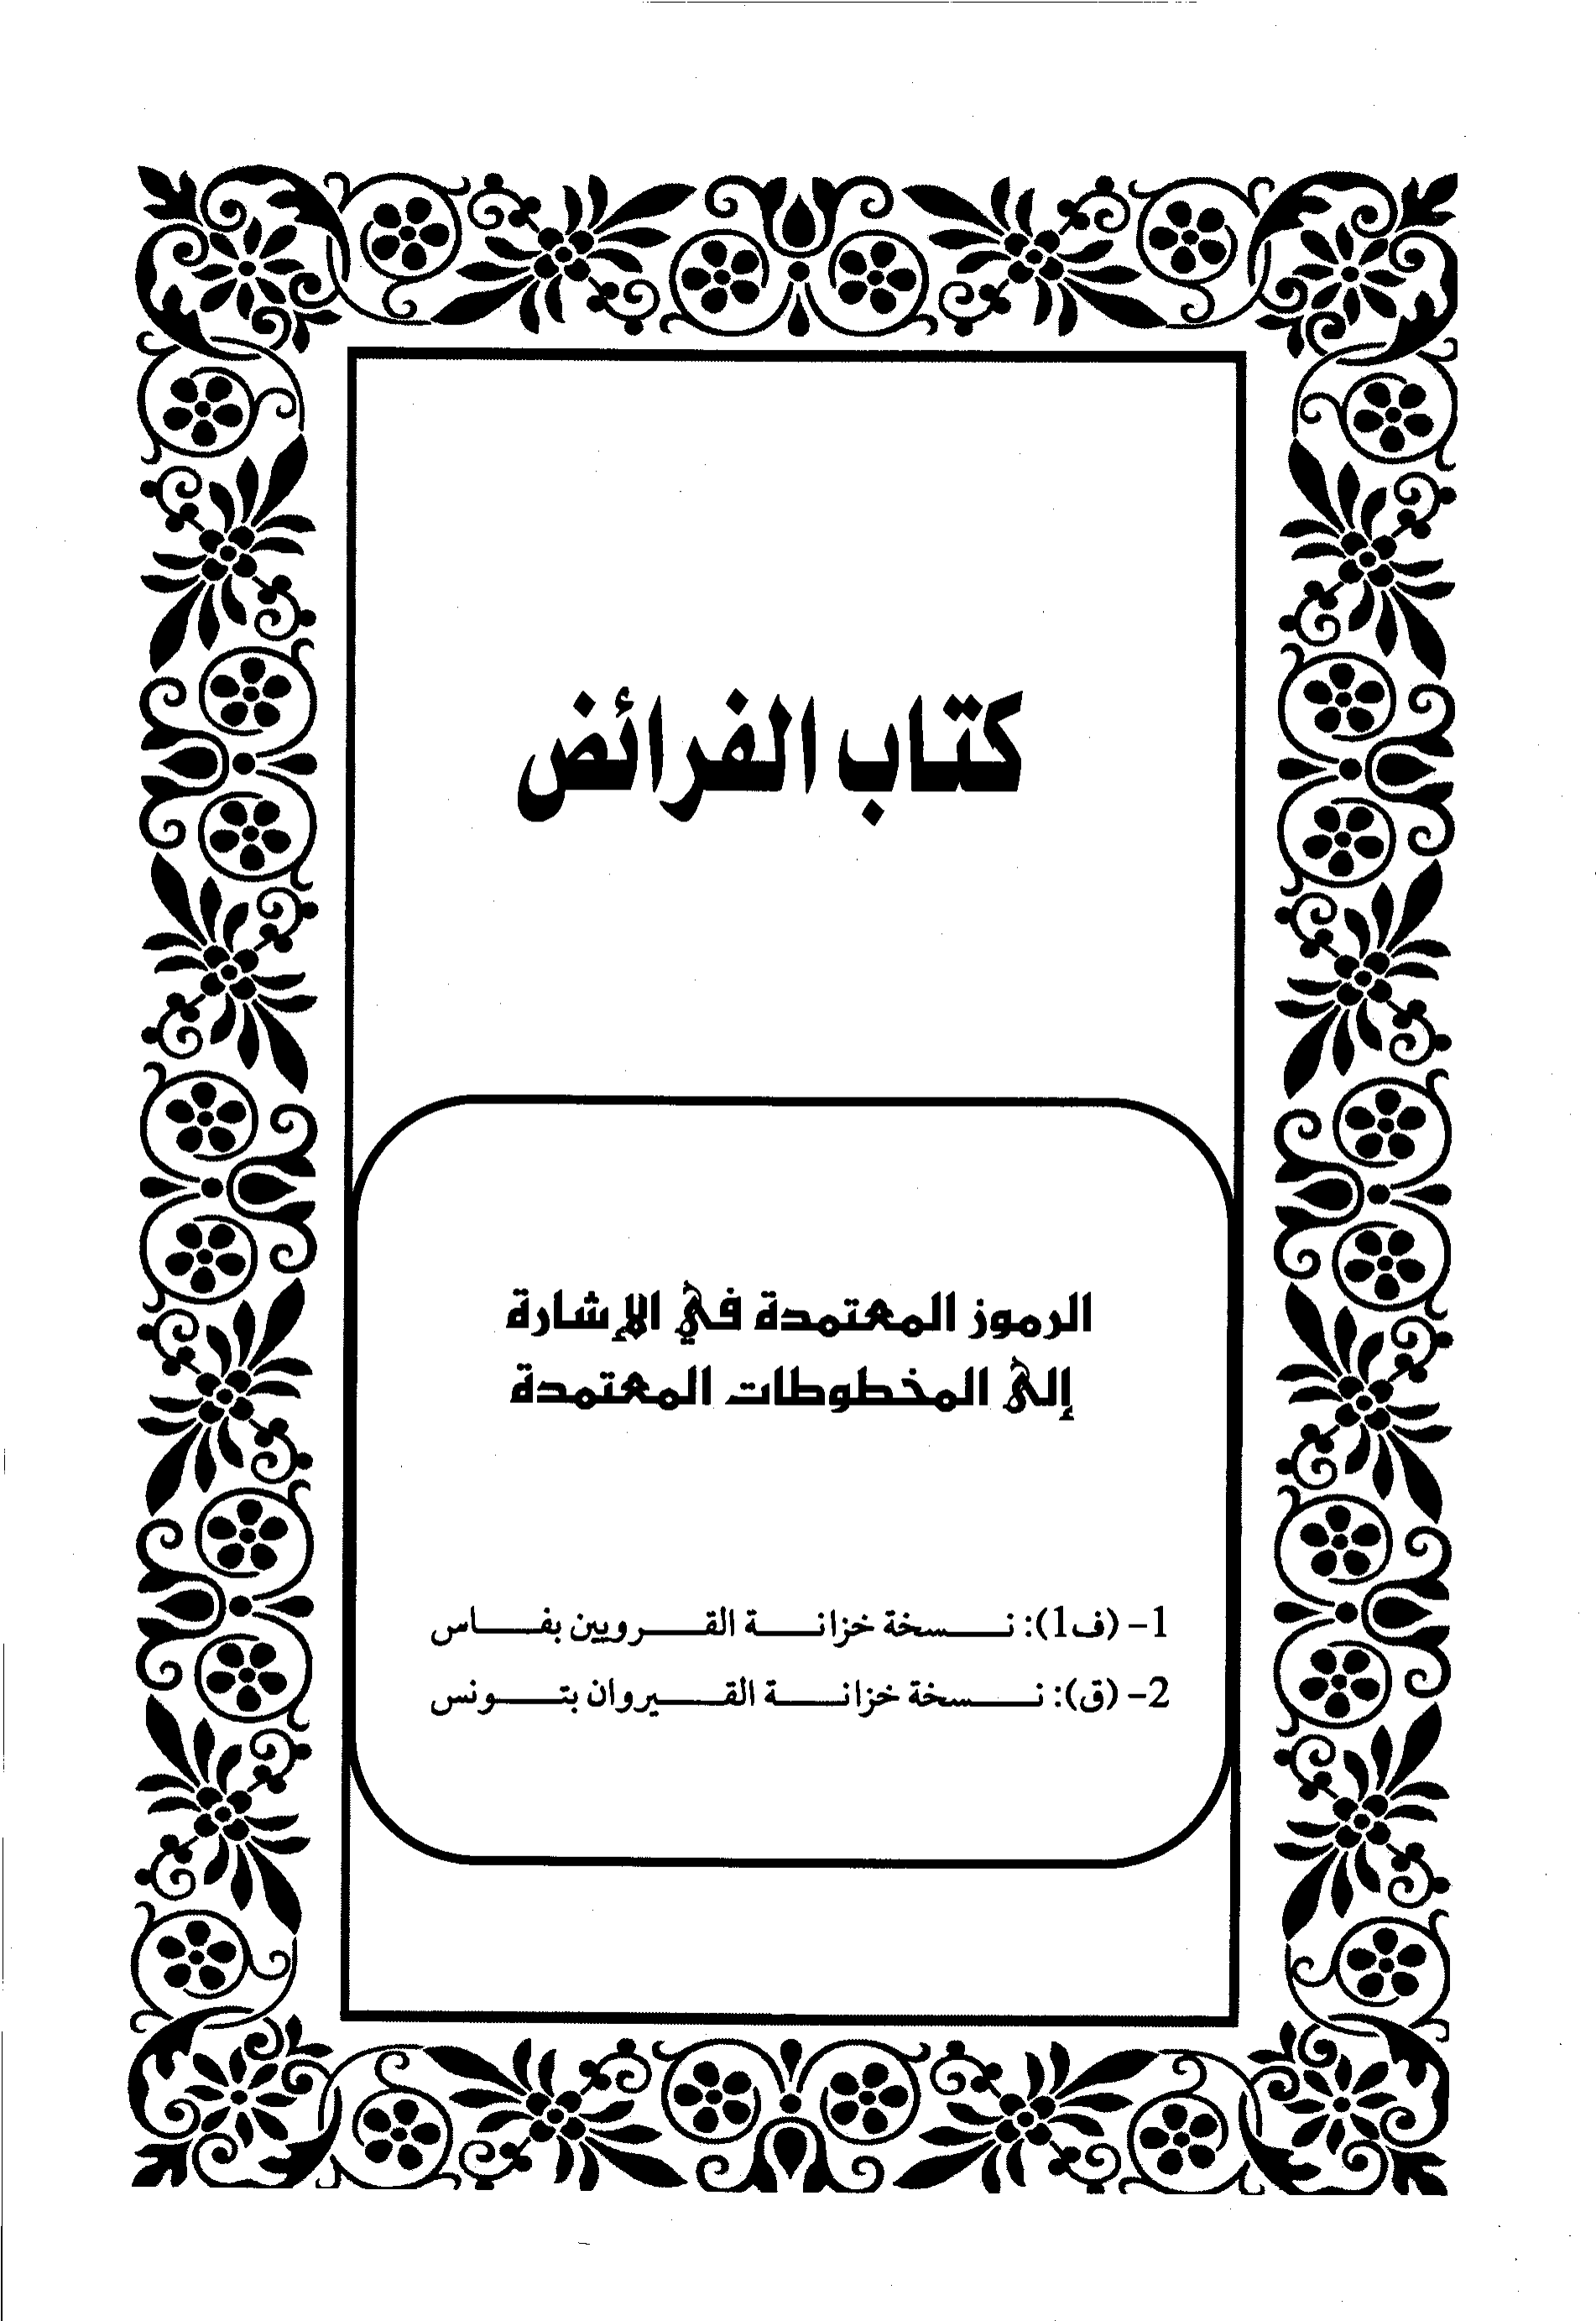 كتاب الفرائض
الرموز المعتمدة في الإشارة
إلى المخطوطات المعتمدة
1- (ف1): نسخة خزانة القرويين بفاس
2- (ق): نسخة خزانة القيروان بتونس